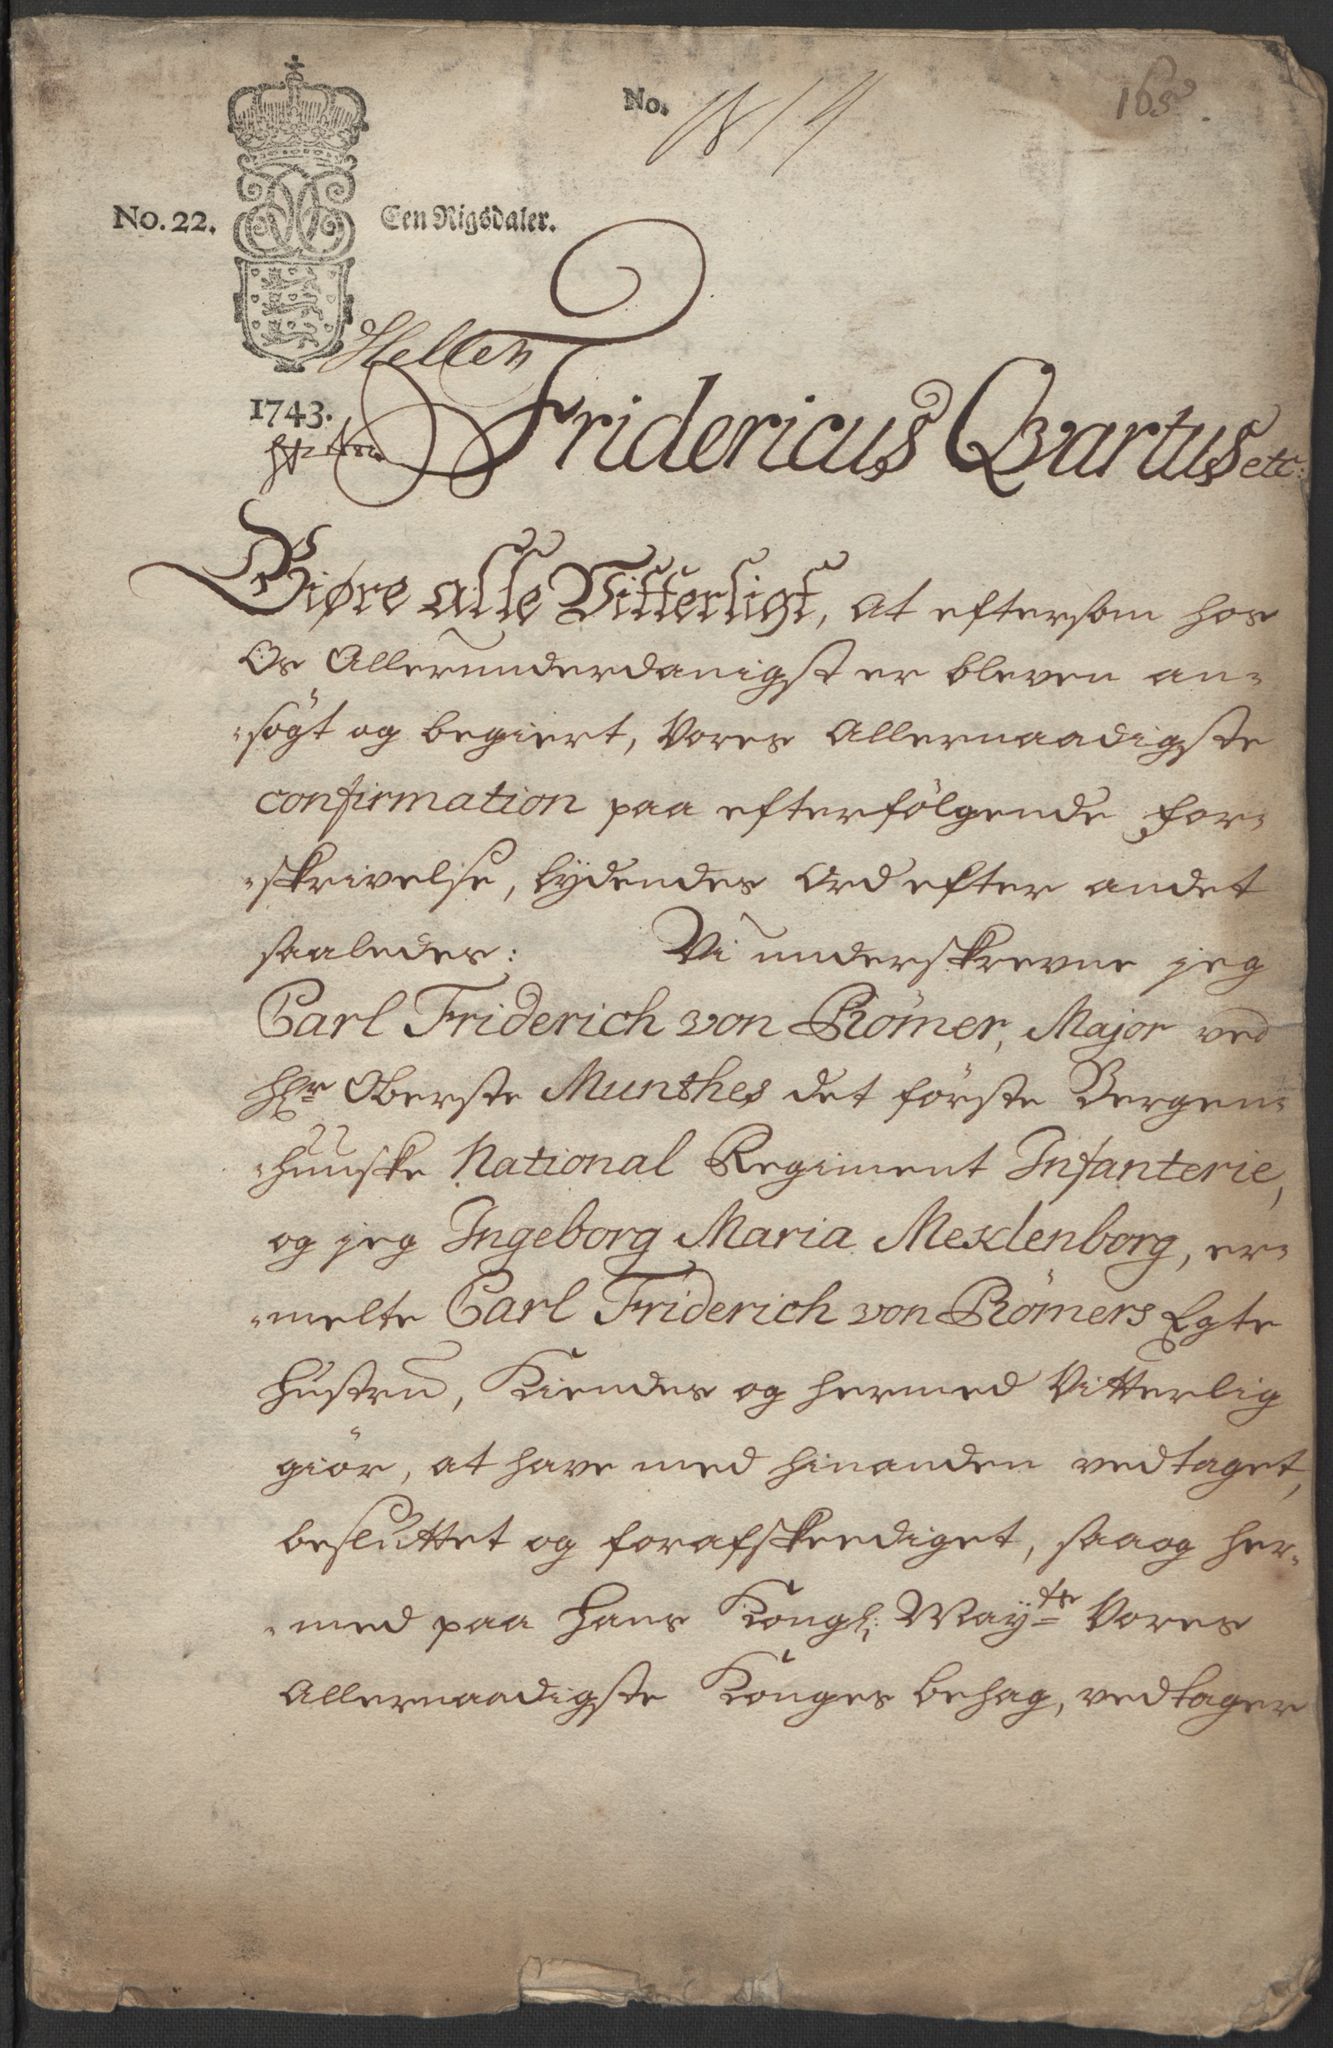 No. 1814
165.
No. 22. Een Rigsdaler.
Hellen
1743.
Fridericus Qvartus etc:
Giøre alle Vitterligt, at eftersom hos
Os Allerunderdanigst er bleven an-
-søgt og begiert, Vores Allernaadigste
confirmation paa efterfölgende for-
-skrivelse, lydendes Ord efter andet
saaledes: Vi underskrevne jeg
Carl Friderich von Römer, Major ved
Hr Oberste Munthes det förste Bergen-
-huuske National Regiment Infanterie,
og jeg Ingeborg Maria Mecklenborg, er-
-melte Carl Friderich von Römers Egte
Hustru, Kiendes og hermed Vitterlig
giör, at have med hinanden vedtaget,
besluttet og forafskeediget, saa og her-
-med paa Hans Kongl: Mayts Vores
Allernaadigste Konges behag, vedtager